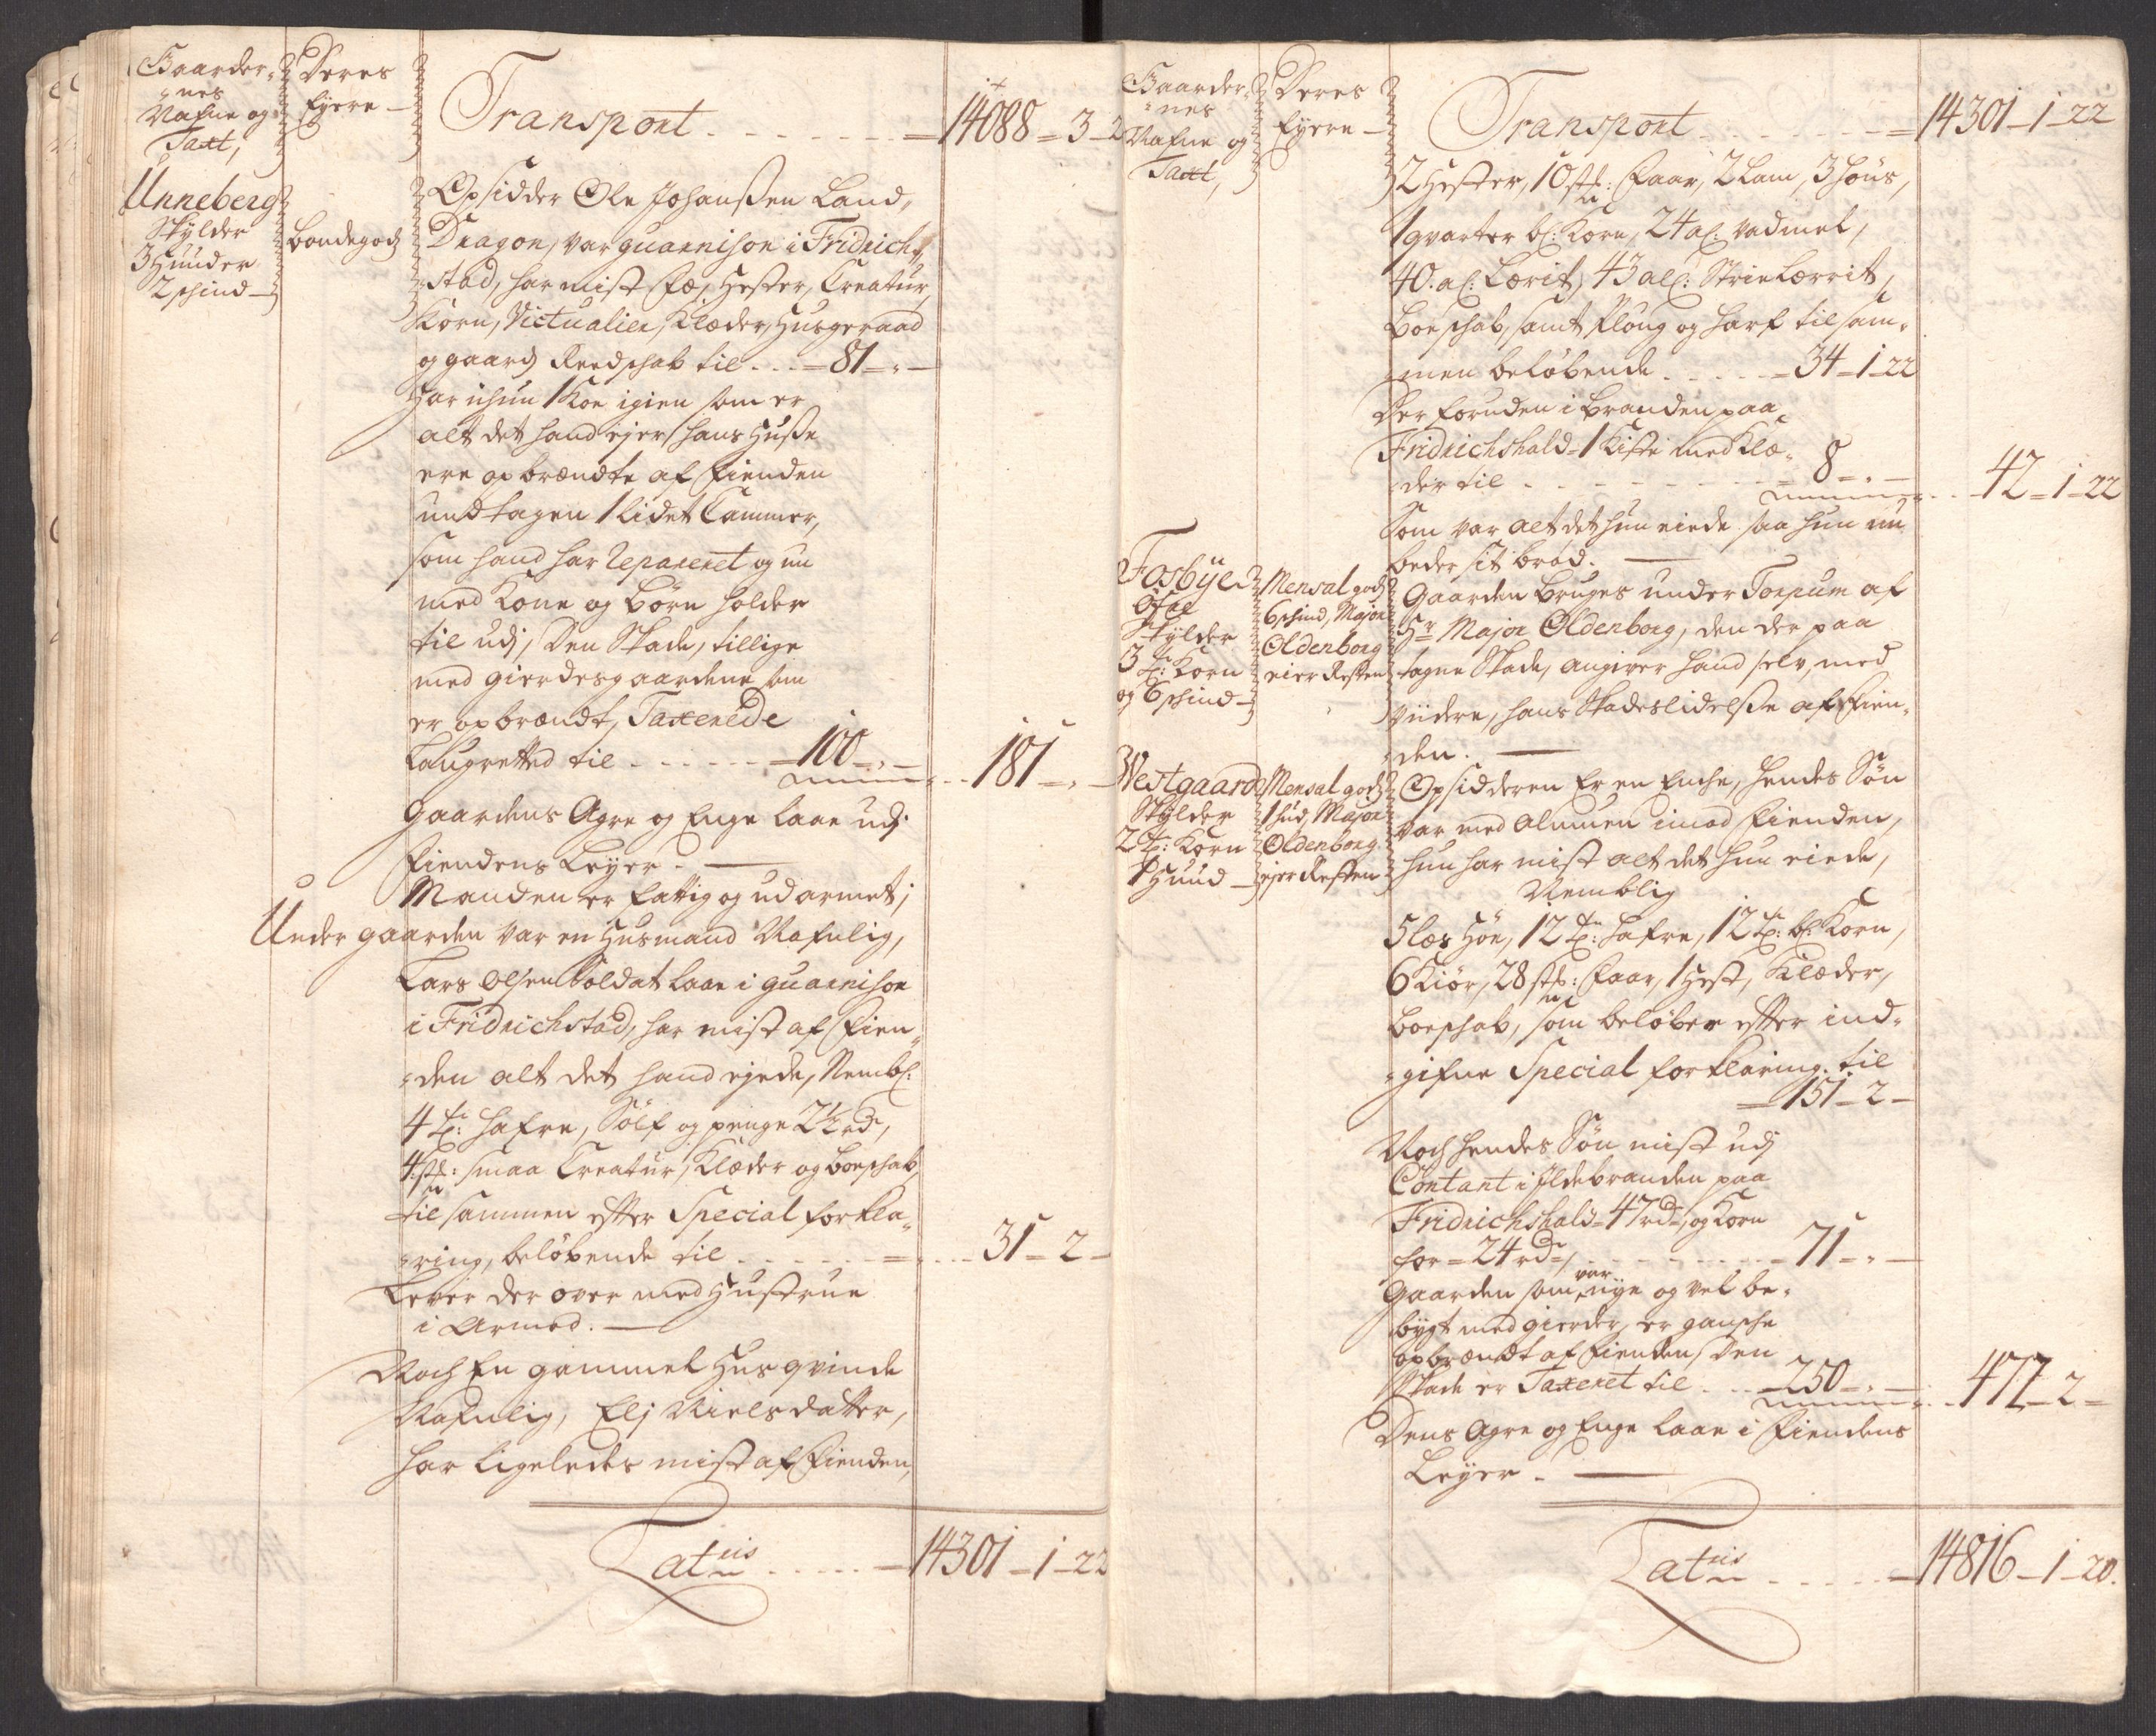 Gaarder-
nes
Nafne og
Taxt,
Deres
Eyere
Transport - - - 14088 - 3 - 2
Unneberg
Skylder
3 Huuder
2 schind
bondegods
Opsidder Ole Johanßen Land,
Dragon, var guarnison i Fridrich-
stad, har mist Fæ, Hester, Creatur,
Korn, Victualier, Klæder, Huusgeraad
og gaards Reedschab til - - - 81 - " -
Har ichun 1 Koe igien som er
alt det hand ejer, hans Huuße
ere opbrændte af Fienden
undtagen 1 lidet Cammer,
som hand har Reparenet og nu
med Kone og Børn holder
til udj, Den Skade, tillige
med gierdesgaardene som
er opbrændt, Taxerede
Laugretted til - - - 100 - " - - - 181 - " -
Gaardens Agre og Enge laae udj
Fiendens Leyer. —
Manden er fattig og udarmet;
Under gaarden var en Huusmand Nafnlig,
Lars Olsen Soldat laae i guarnison
i Fridrichstad, har mist af Fien-
den alt det hand ejede, Nembl:
4 tr: Hafre, Sølf og penge 2½ rdr,
4 stk: smaa Creatur, Klæder og boeschab,
til sammen efter Special forkla-
ring, beløbende til - - - 31 - 2 -
Lever der over med Hustrue
i Armod. —
Noch En gammel Huusqvinde
Nafnlig, Elj Nielsdatter,
har ligeledes mist af Fienden,
Latus - - - 14301 - 1 - 22
Gaarder-
nes
Nafne og
Taxt,
Deres
Eyere
Transport - - - 14301 - 1 - 22
2 Hester, 10 stk: Faar, 2 Lam, 3 Høns,
1 qvarter bl: Korn, 24 al: vadmel,
40. al: Lærit, 43 all: Strie Lærrit,
Boeschab, samt Ploug og Harf til sam-
men beløbende - - - 34 - 1 - 22
Der foruden i Branden paa
Fridrichshald 1 Kiste med Klæ-
der til - - - 8 - " - - - 42 - 1 - 22
Som var alt det hun eiede saa hun nu
beder sit brød. —
Fosbye
Skylder
3 tr: Korn
og 6 schind
Mensal gods
6 schind, Major
Oldenborg
eier Resten
Gaarden Bruges under Torpum af
Hr Major Oldenborg, den der paa
tagne Skade, angiver hand selv, med
viidere, hans Skadeslidelße af Fien-
den. —
Westgaard
Skylder
2 tr: Korn
1 Huud
Mensal gods
1 hud, Major
Oldenborg
ejer Resten
Opsidderen Er en Enche, hendes Søn
var med Almuen imod Fienden,
hun har mist alt det hun eiede,
Nemblig
5 læs Høe, 12 tr: Hafre, 12 tr: bl: Korn,
6 Kiør, 28 stk: Faar, 1 Hest, Klæder,
boeschab, som beløber efter ind-
gifne Special forklaring til
151 - 2 -
Noch hendes Søn mist udj
Contant i Ildebranden paa
Fridrichshald 47 rdr, og Korn
for 24 rdr, - - - 71 - " -
Gaarden som var nye og vel be-
bygt med gierder, er gansche
opbrændt af Fienden, Den
Skade er Taxeret til - - - 250 - " - - - 472 - 2 -
Dens Agre og Enge laae i Fiendens
Leyer. —
Latus - - - 14816 - 1 - 20.